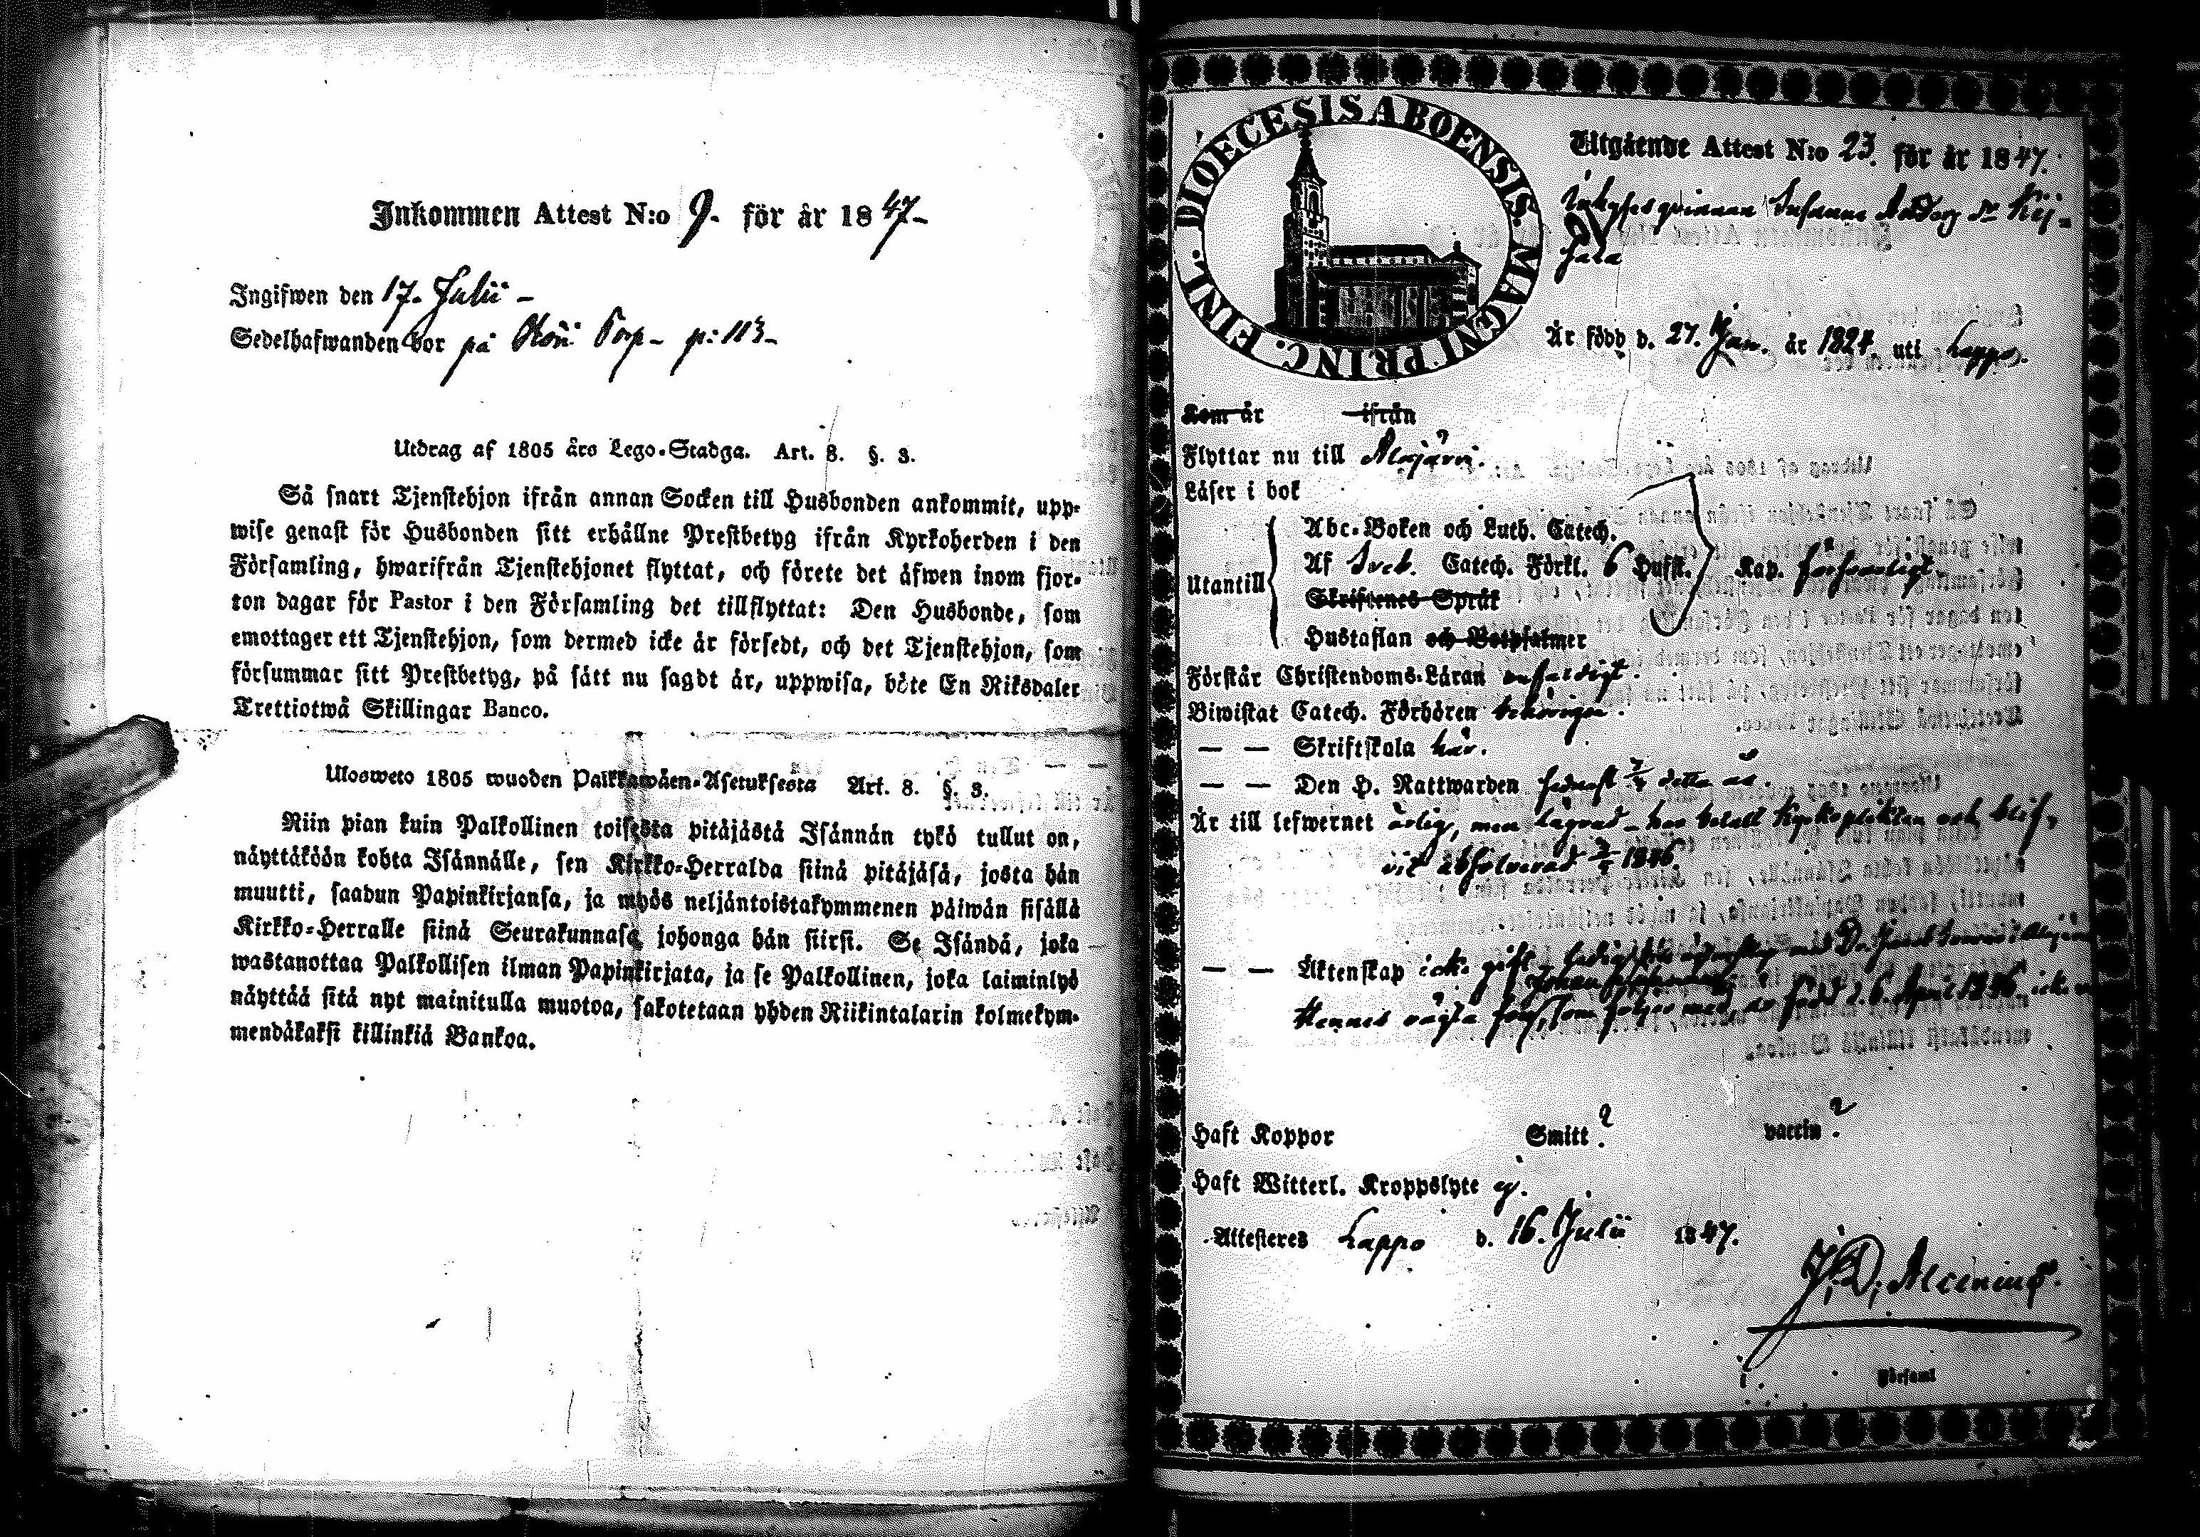 Inkommen Attest N:o 9. för år 1847-
Ingifwen den 17. Julii -
Sedelhafwanden bor på Torp- p: 113-
Utdrag af 1805 års Lego-Stadga. Art. 8. §. 3.
Så snart Tjenstehjon ifrån annan Socken till Husbonden ankommit, upp-
wise genast för Husbonden sitt erhållne Prestbetyg ifrån Kyrkoherden i den
Församling, hwarifrån Tjenstehjonet flyttat, och förete det äfwen inom fjor-
ton dagar för Pastor i den Församling det tillflyttat: Den Husbonde, som
emottager ett Tjenstehjon, som dermed icke är försedt, och det Tjenstehjon, som
försummar sitt Prestbetyg, på sätt nu sagdt är, uppwisa, böte En Riksdaler
Trettiotwå Skillingar Banco.
Ulosweto 1805 wuoden Palkkawäen-Asetuksesta Art. 8. §. 3.
Niin pian kuin Palkollinen toisesta pitäjästä Isännän tykö tullut on,
näyttäköön kohta Isännälle, sen Kirkko-Herralda siinä pitäjäsä, josta hän
muutti, saadun Papinkirjansa, ja myös neljäntoistakymmenen päiwän sisällä
Kirkko-Herralle siinä Seurakunnasa johonga hän siirsi. Se Isändä, joka
wastanottaa Palkollisen ilman Papinkirjata, ja se Palkollinen, joka laiminlyö
näyttää sitä nyt mainitulla muotoa, sakotetaan yhden Riikintalarin kolmekym-
mendäkaksi killinkiä Bankoa.
DIOECESIS ABOENSIS. MAGNI PRINC. FINL.
Utgående Attest N:o 23. för år 1847.
Inhyses qvinnan Susanna Anders dr
Är född d. 27. Jan. år 1824. uti Lappo.
Kom år ifrån
Flyttar nu till Alajärvi.
Läser i bok
Abc-Boken och Luth. Catech.
Utantill Af Sveb. Catech. Förkl. 6 Hufst. Kap. försvarligt.
Skriftenes Språk
Hustaflan och Botpsalmer
Förstår Christendoms-Läran enfaldigt.
Biwistat Catech. Förhören behörigen.
— — Skriftskola här.
— — Den H. Nattwarden sednast detta år.
Är till lefwernet ärlig, men lägrad - har betalt Kyrkoplikten och blif-
vit absolverad 1846
— — Äktenskap icke gift,
Hennes oägta son, som följer med, är född d. 6. April 1846
Haft Koppor Smitt? vaccin?
Haft Witterl. Kroppslyte ej.
Attesteres Lappo d. 16. Julii 1847.
J. D. Alcenius.
Församl